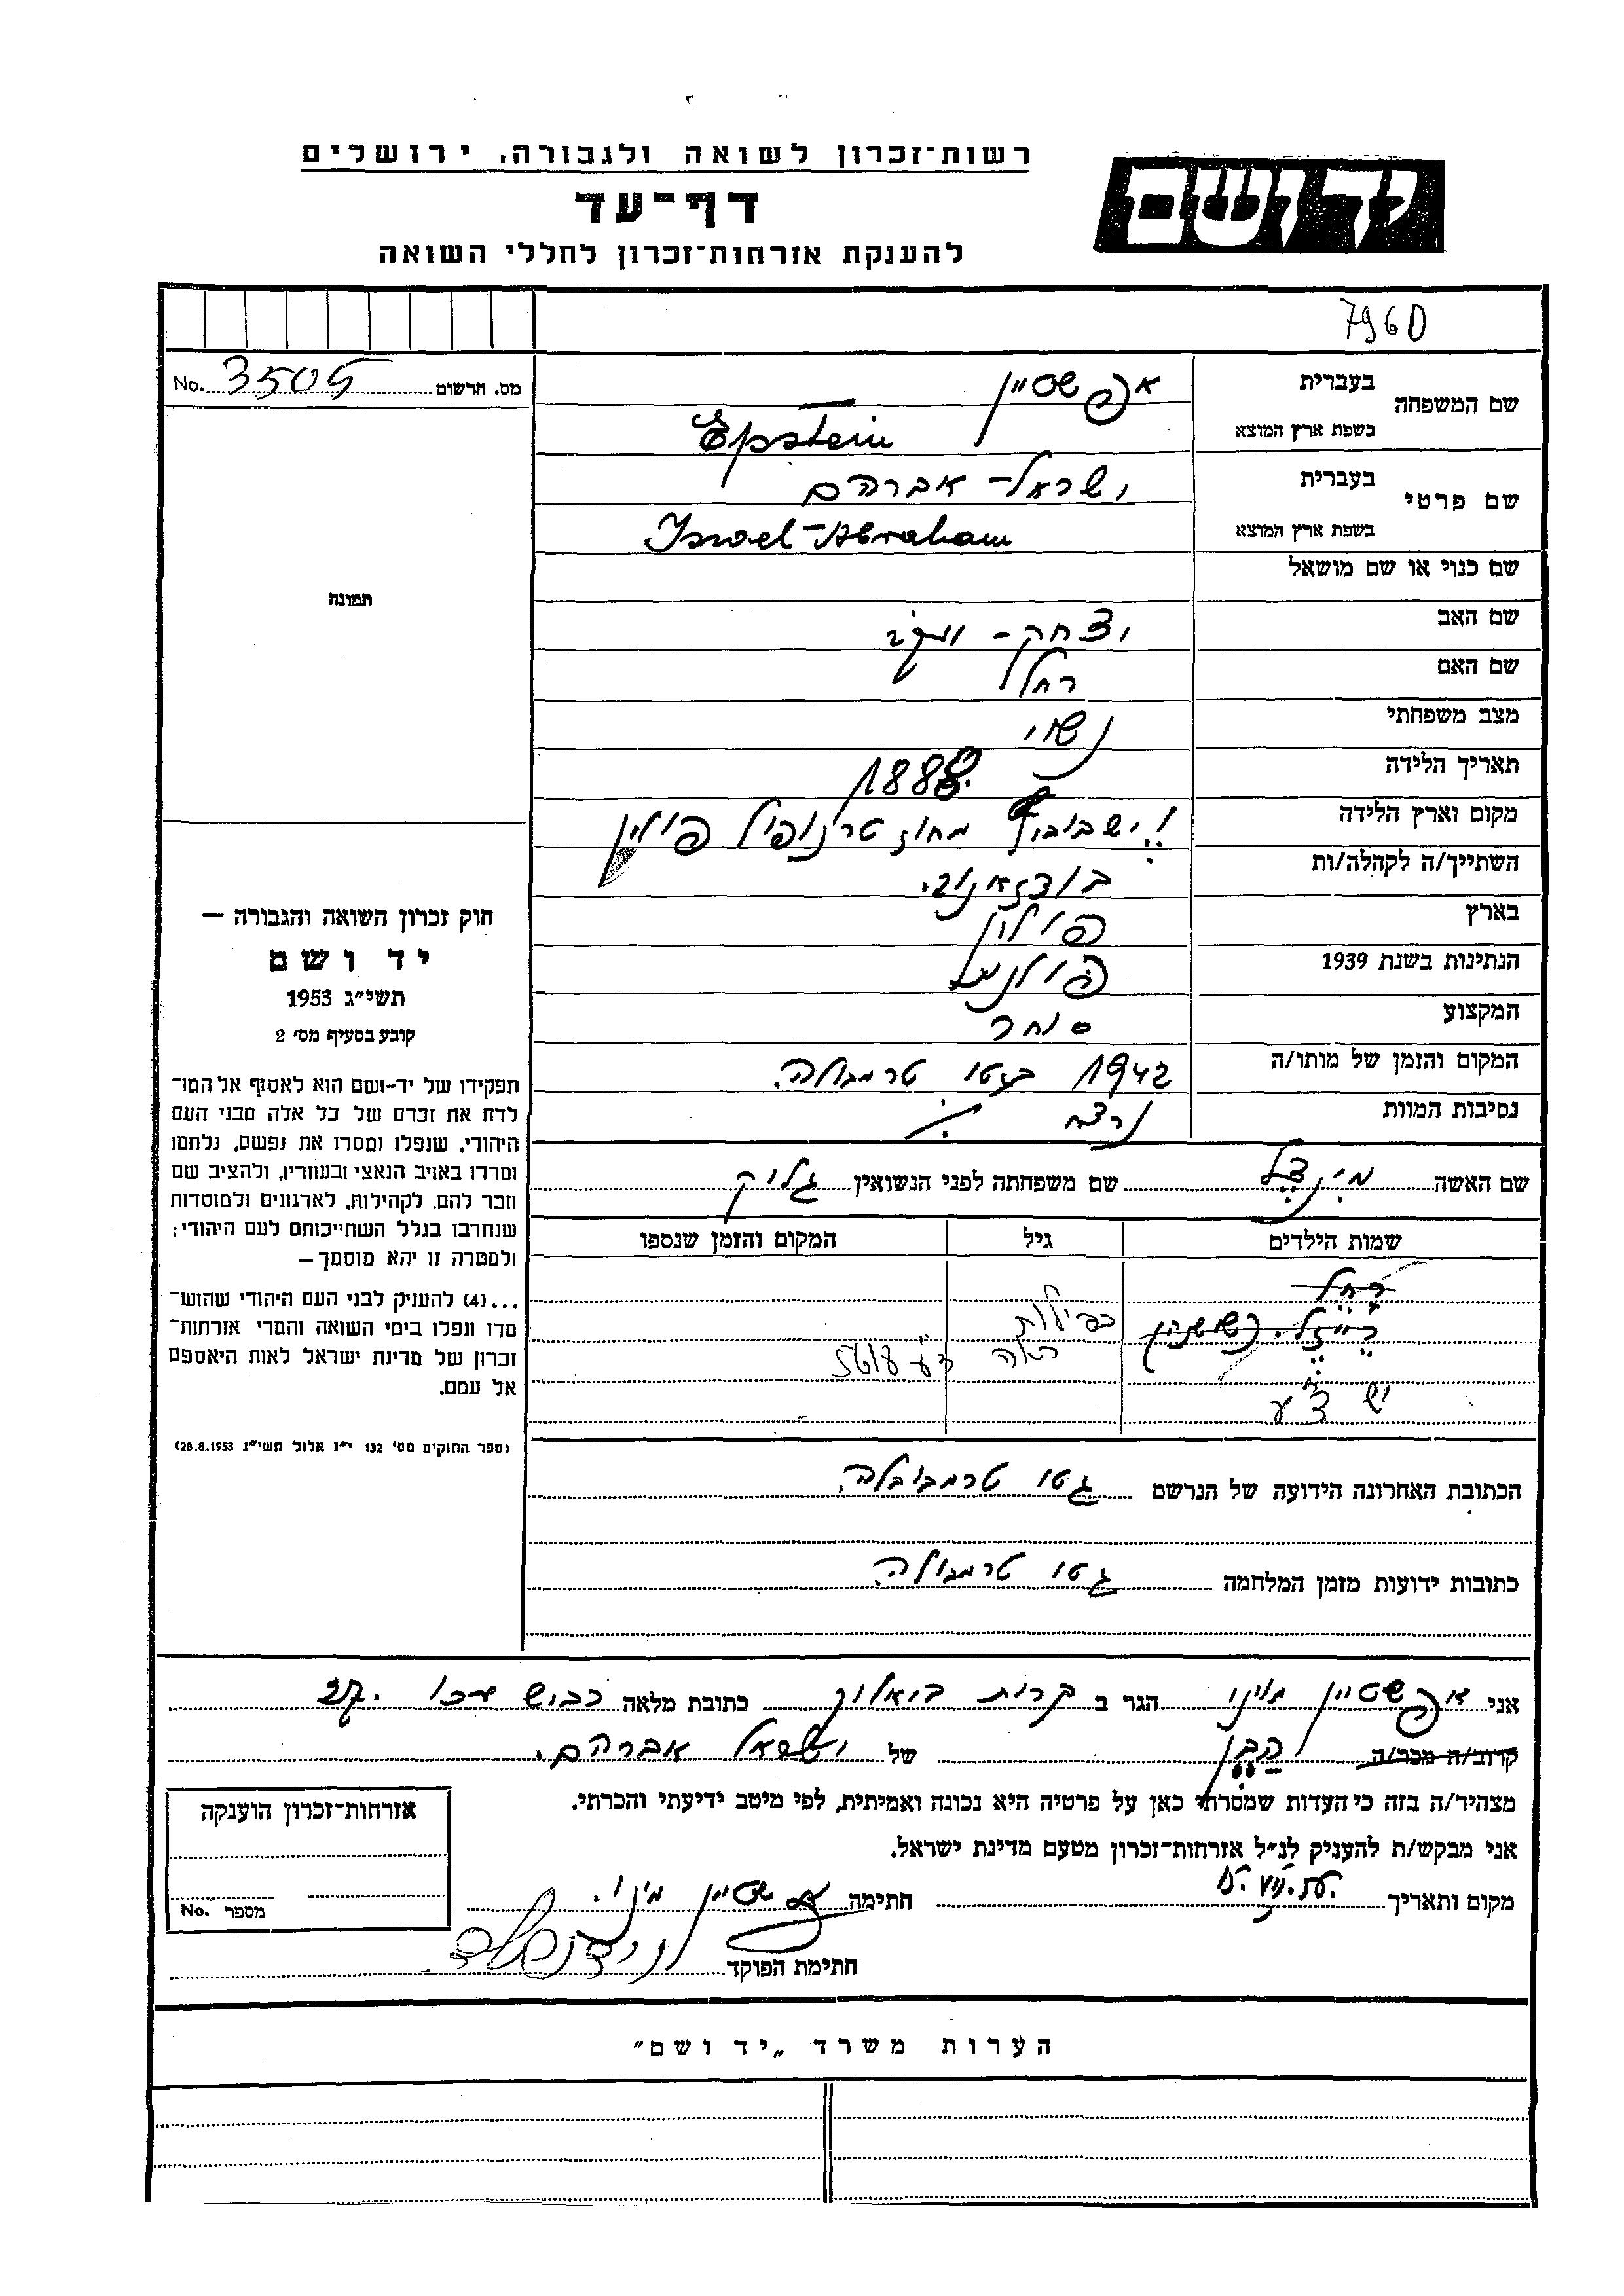 רשות־זכרון לשואה ולגבורה, ירושלים
יד ושם
דף־עד
להענקת אזרחות־זכרון לחללי השואה
7960
מס. הרשום No. 3505
שם המשפחה
בעברית אפשטיין
בשפת ארץ המוצא Epstein
שם פרטי
בעברית ישראל־אברהם
בשפת ארץ המוצא Israel-Abraham
שם כנוי או שם מושאל
שם האב יצחק־
שם האם רחל
מצב משפחתי נשוי
תאריך הלידה 1888
מקום וארץ הלידה מחוז טרנופול פולין
השתייך/ה לקהלה/ות בודזאנוב.
בארץ פולין
הנתינות בשנת 1939 פולנית
המקצוע סוחר
המקום והזמן של מותו/ה 1942 בגטו טרמבולה.
נסיבות המוות נרצח
שם האשה מינצל שם משפחתה לפני הנשואין גליק
שמות הילדים גיל המקום והזמן שנספו
רחל
רייזל
יש
הכתובת האחרונה הידועה של הנרשם גטו טרמבובלה.
כתובות ידועות מזמן המלחמה גטו טרמבולה.
אני אפשטיין הגר ב קרית ביאליק כתובת מלאה כביש עכו
קרוב/ה מכר/ה הבן של ישראל אברהם.
מצהיר/ה בזה כי העדות שמסרתי כאן על פרטיה היא נכונה ואמיתית, לפי מיטב ידיעתי והכרתי.
אני מבקש/ת להעניק לנ״ל אזרחות־זכרון מטעם מדינת ישראל.
מקום ותאריך חתימה אפשטיין
חתימת הפוקד
תמונה
חוק זכרון השואה והגבורה —
יד ושם
תשי״ג 1953
קובע בסעיף מס׳ 2
תפקידו של יד-ושם הוא לאסוף אל המו־
לדת את זכרם של כל אלה מבני העם
היהודי, שנפלו ומסרו את נפשם, נלחמו
ומרדו באויב הנאצי ובעוזריו, ולהציב שם
וזכר להם, לקהילות, לארגונים ולמוסדות
שנחרבו בגלל השתייכותם לעם היהודי;
ולמטרה זו יהא מוסמך—
...(4) להעניק לבני העם היהודי שהוש־
מדו ונפלו בימי השואה והמרי אזרחות־
זכרון של מדינת ישראל לאות היאספם
אל עמם.
(ספר החוקים מס׳ 132 י״ז אלול תשי״ג 28.8.1953)
אזרחות־זכרון הוענקה
מספר No.
הערות משרד „יד ושם״